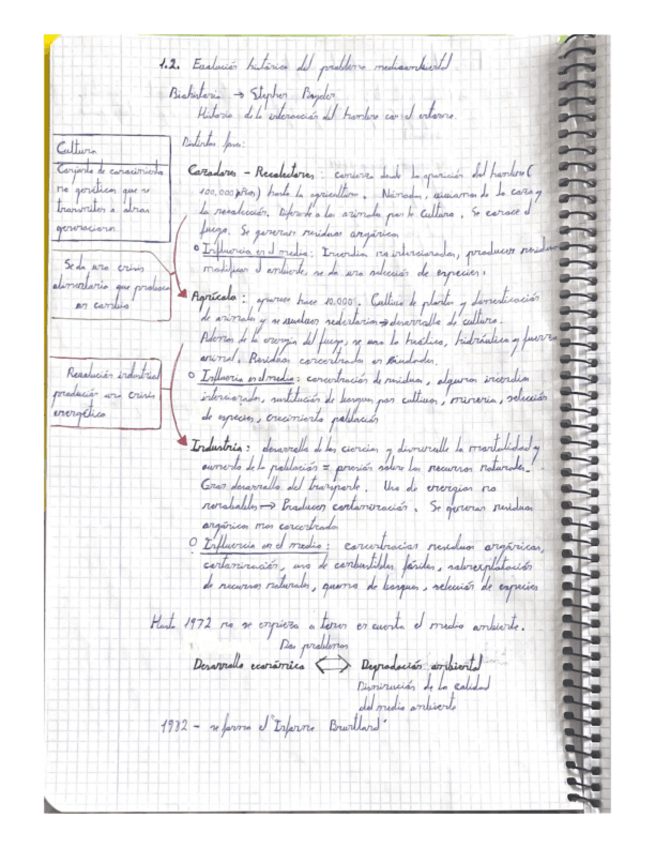 1.2. Evolución histórica del problema medioambiental
Biohistoria → Stephen Boyden
Historia de la interacción del hombre con el entorno.
Distintas fases:
Cultura
Conjunto de conocimientos
no genéticos que se
transmiten a otras
generaciones
Cazadores - Recolectores: comienza desde la aparición del hombre (
100.000 años) hasta la agricultura. Nómadas, vivíamos de la caza y
la recolección. Diferente a los animales por la cultura. Se conoce el
fuego. Se generan residuos orgánicos
Influencia en el medio: Incendios no intencionados, producen residuos
modifican el ambiente, se da una selección de especies.
Se da una crisis
alimentaria que produce
un cambio
Agrícola: aparece hace 10.000. Cultivo de plantas y domesticación
de animales y se vuelven sedentarios → desarrollo de cultura.
Además de la energía del fuego, se usa la eólica, hidráulica y fuerza
animal. Residuos concentrados en ciudades.
Influencia en el medio: concentración de residuos, algunos incendios
intencionados, sustitución de bosques por cultivos, minería, selección
de especies, crecimiento población
Revolución industrial
producción una crisis
energética
Industria: desarrollo de las ciencias y disminuye la mortalidad y
aumento de la población = presión sobre los recursos naturales.
Gran desarrollo del transporte. Uso de energías no
renovables → Producen contaminación. Se generan residuos
orgánicos mas concentrados
Influencia en el medio: concentración residuos orgánicos,
contaminación, uso de combustibles fósiles, sobreexplotación
de recursos naturales, quema de bosques, selección de especies
Hasta 1972 no se empieza a tener en cuenta el medio ambiente.
Dos problemas
Desarrollo económico ⟺ Degradación ambiental
Disminución de la calidad
del medio ambiente
1982 - se forma el "Informe Bruntland"